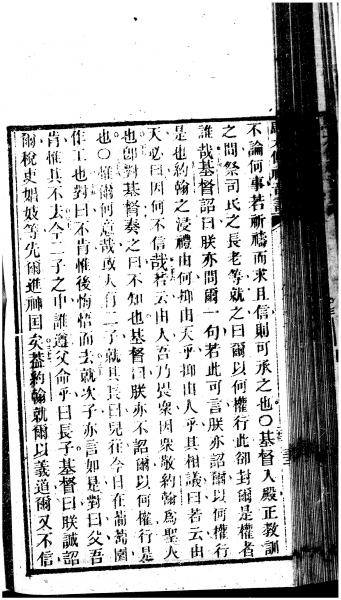 不論何事若祈禱而求且信則可承之也〇基督入殿正教訓
之間祭司氏之長老等就之曰爾以何權行此卻封爾是權者
誰哉基督詔曰朕亦問爾一句若此可言朕亦詔爾以何權行
是也約翰之浸禮由何抑由天乎抑由人乎其相議曰若云由
天必曰因何不信哉若云由人吾乃畏衆因衆敬約翰爲聖人
也卽對基督奏之曰不知也基督曰朕亦不詔爾以何權行是
也〇惟爾何意哉或人有二子就其長曰兒往今日在葡萄園
作工也對曰不肯惟後悔悟而去就次子亦言如是對曰父吾
肯惟其不去今二子之中誰遵父命乎曰長子基督曰朕誠詔
爾稅吏娼妓等先爾進神国矣葢約翰就爾以義道爾又不信